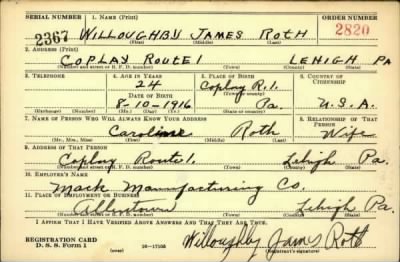 SERIAL NUMBER 1. NAME (Print) ORDER NUMBER
2367 WILLOUGHBY JAMES ROTH 2820
(First) (Middle) (Last)
2. ADDRESS (Print)
COPLAY ROUTE 1 LEHIGH PA
(Number and street or R. F. D. number) (Town) (County) (State)
3. TELEPHONE 4. AGE IN YEARS 5. PLACE OF BIRTH 6. COUNTRY OF CITIZENSHIP
24 Coplay R.1.
DATE OF BIRTH (Town or county)
8-10-1916 Pa. U.S.A.
(Exchange) (Number) (Mo.) (Day) (Yr.) (State or country)
7. NAME OF PERSON WHO WILL ALWAYS KNOW YOUR ADDRESS 8. RELATIONSHIP OF THAT PERSON
Caroline Roth Wife
(Mr., Mrs., Miss) (First) (Middle) (Last)
9. ADDRESS OF THAT PERSON
Coplay Route 1. Lehigh Pa.
(Number and street or R. F. D. number) (Town) (County) (State)
10. EMPLOYER'S NAME
Mack Manufacturing Co.
11. PLACE OF EMPLOYMENT OR BUSINESS
Allentown Lehigh Pa.
(Number and street or R. F. D. number) (Town) (County) (State)
I AFFIRM THAT I HAVE VERIFIED ABOVE ANSWERS AND THAT THEY ARE TRUE.
REGISTRATION CARD
D. S. S. Form 1 (over) 16-17105 Willoughby James Roth